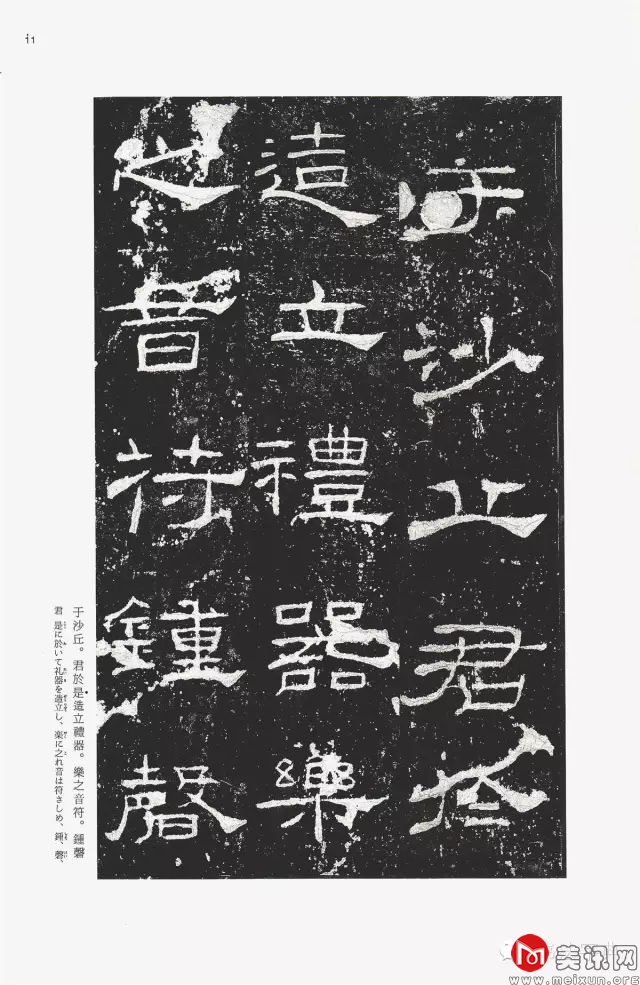 11
于沙丘君於
造立禮器樂
之音符鍾磬
于沙丘。君於是造立禮器。樂之音符。鍾磬
君 是に於いて礼器を造立し、楽に之れ音は符さしめ、鍾、磬、
美讯网
www.meixun.org